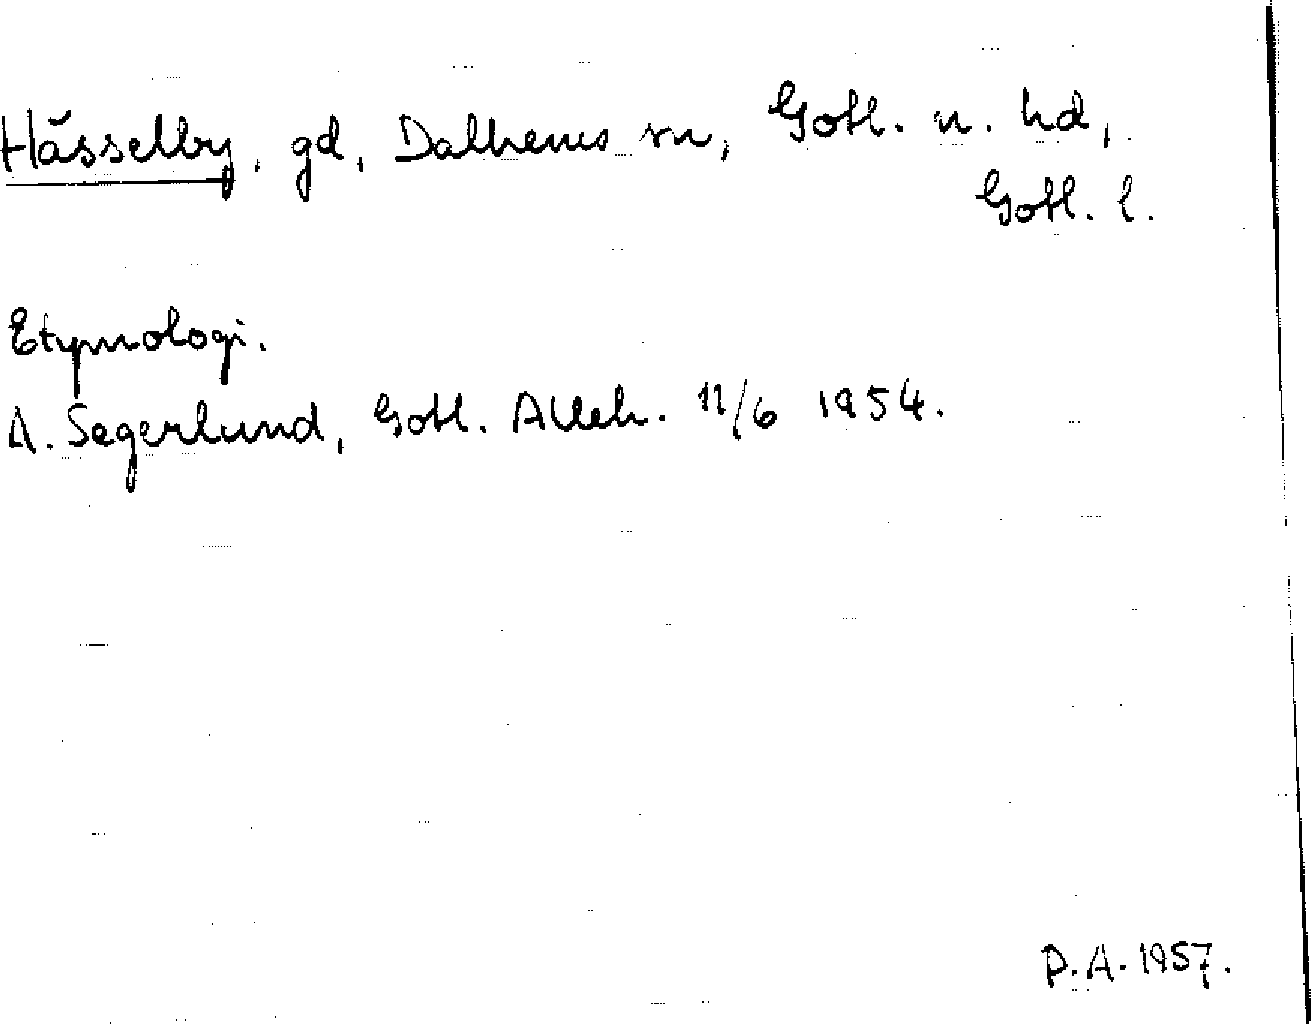 Hässelby, gd, Dalhems sn, Gotl. n. hd,
Gotl. l.
Etymologi.
A. Segerlund, Gotl. Alleh. 11/6 1954.
P.A. 1957.